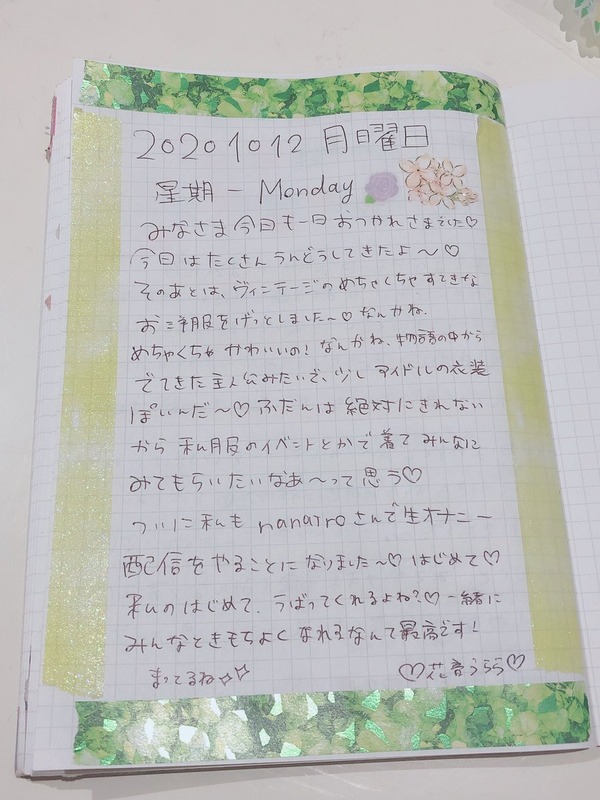 20201012 月曜日
星期一 Monday
みなさま今日も一日おつかれさまでした♡
今日はたくさんうんどうしてきたよ〜♡
そのあとは、ヴィンテージのめちゃくちゃすてきな
お洋服をげっとしました〜♡なんかね、
めちゃくちゃかわいいの！なんかね、物語の中から
でてきた主人公みたいで、少しアイドルの衣装
ぽいんだ〜♡ふだんは絶対にきれない
から私服のイベントとかで着てみんなに
みてもらいたいなあ〜って思う♡
ついに私もnanatroさんで生オナニー
配信をやることになりました〜♡はじめて♡
私のはじめて、うばってくれるよね？♡一緒に
みんなときもちよくなれるなんて最高です！
まってるね☆☆
♡花音うらら♡